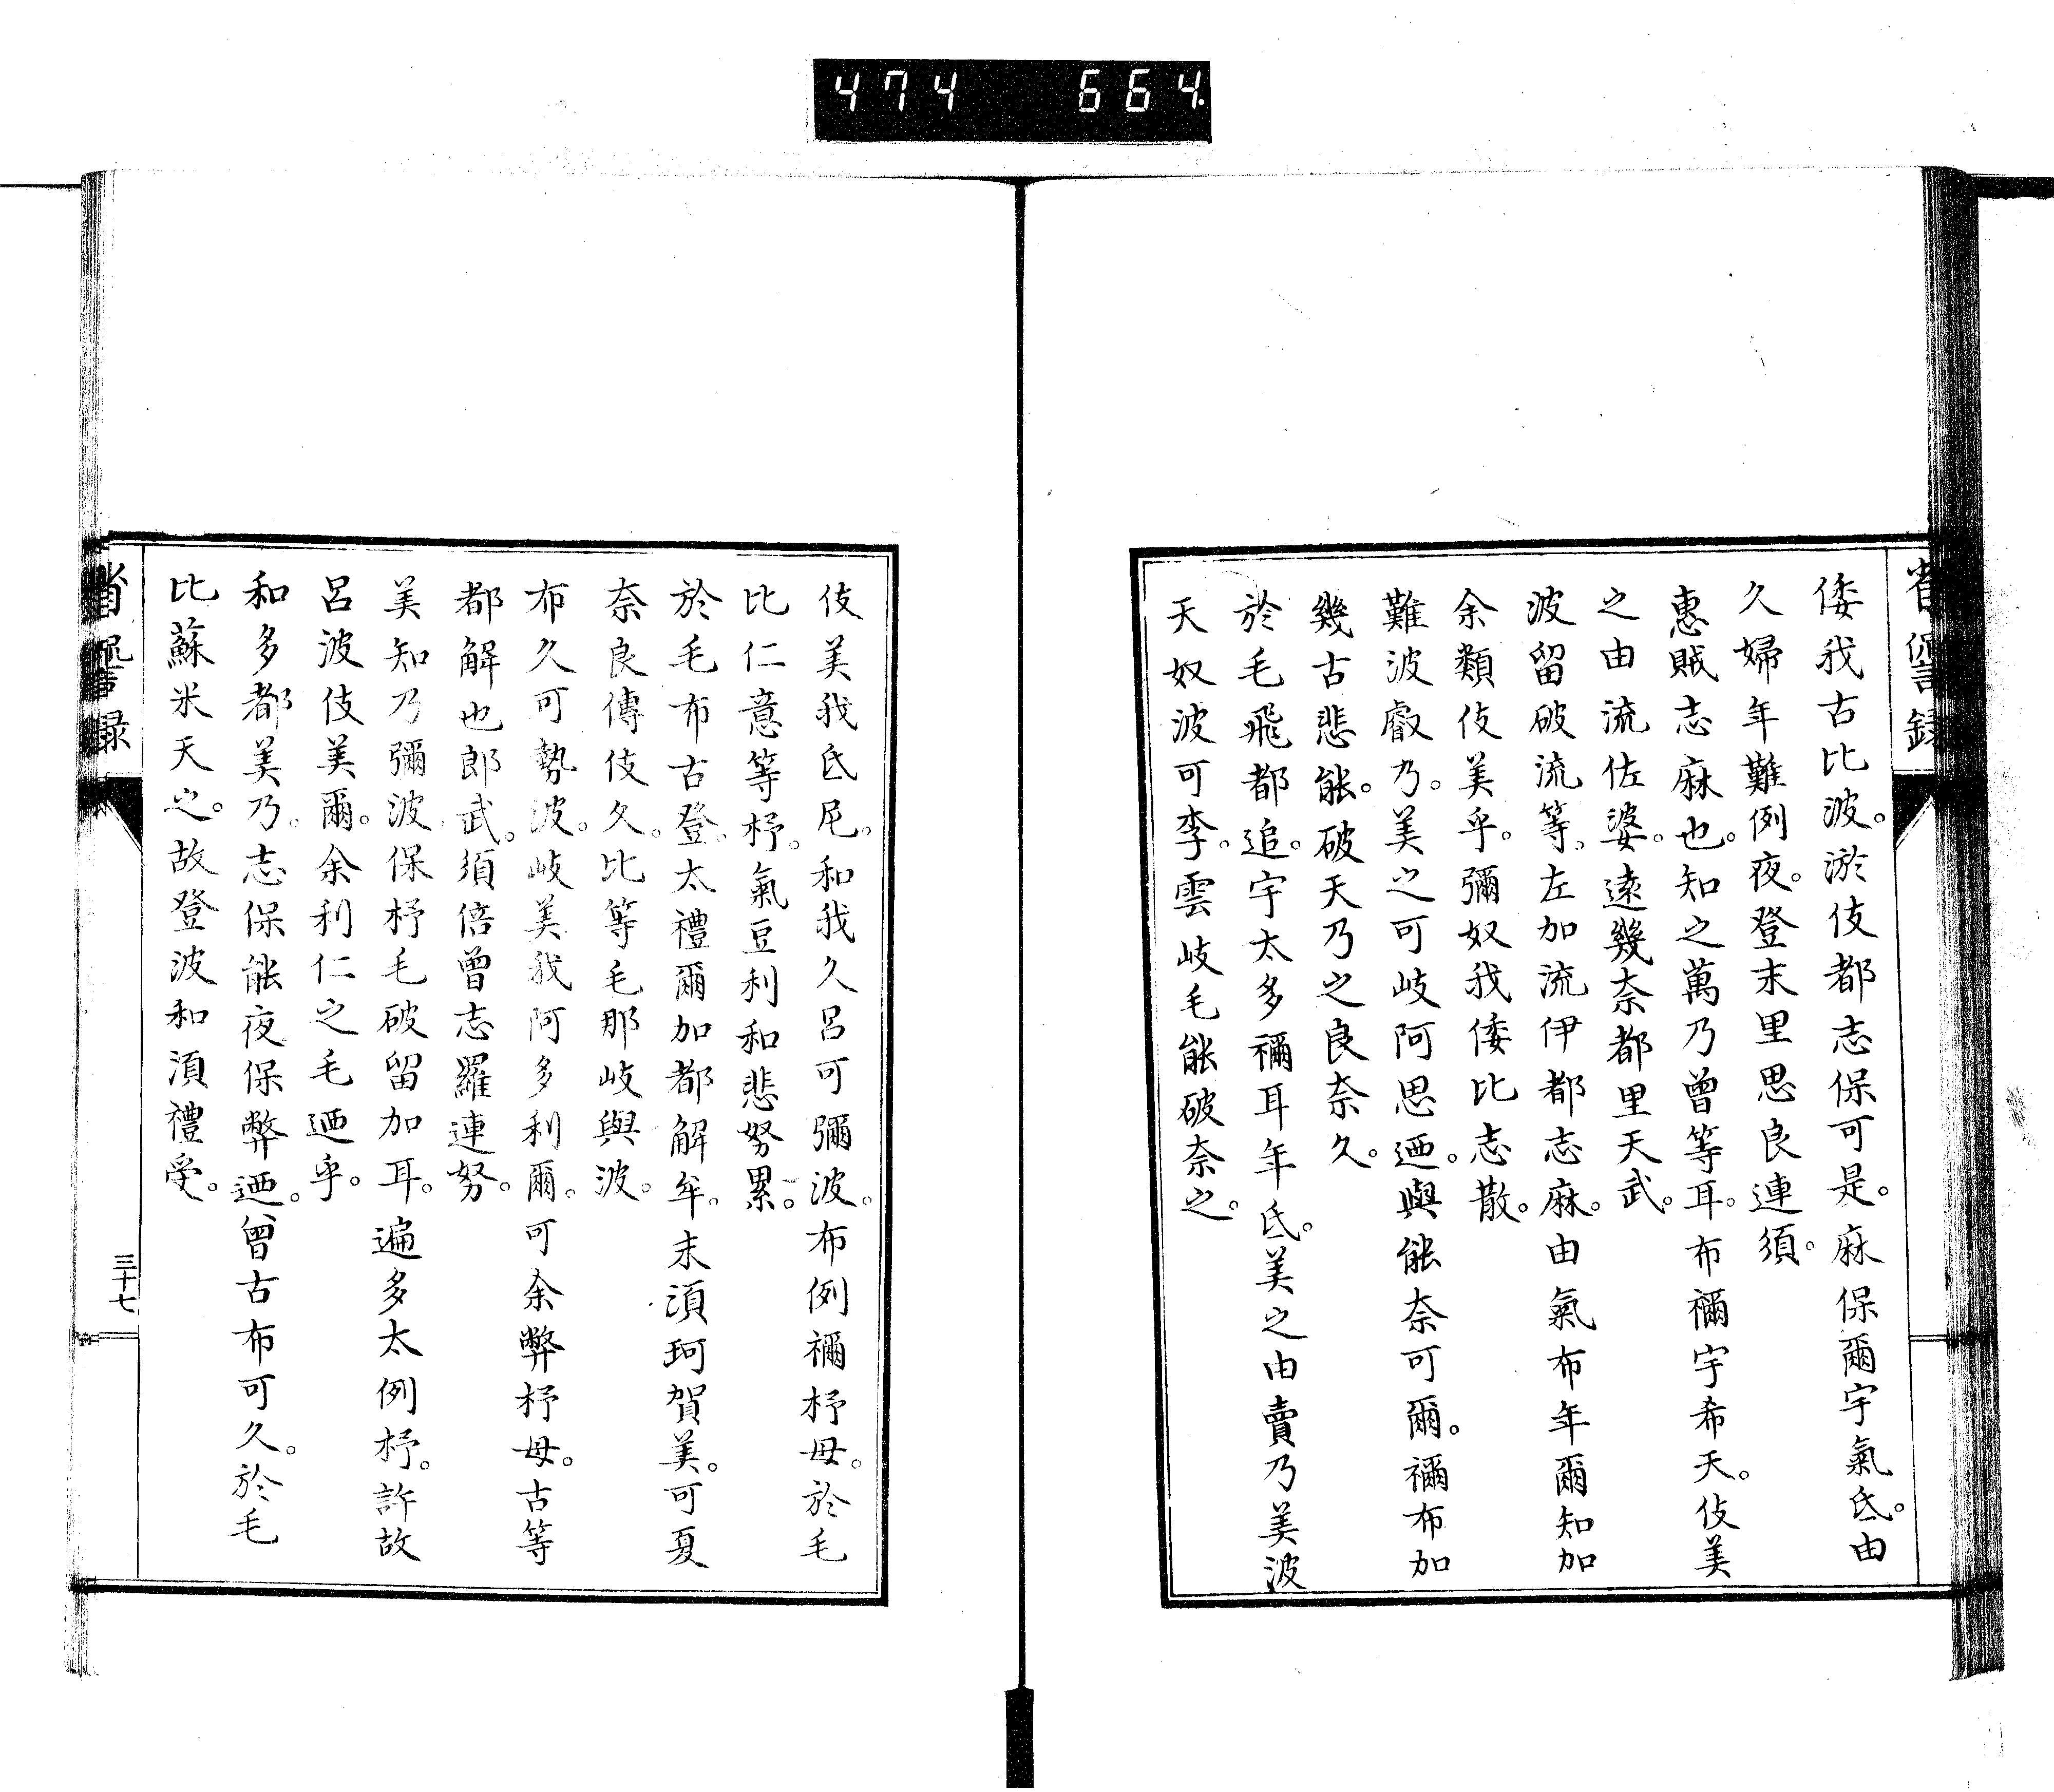 474 664.
省諐録
倭我古比波。淤伎都志保可是。麻保爾宇氣氐。由
久婦年難例夜。登末里思良連須。
惠賊志麻也。知之萬乃曾等耳。布禰宇希天。伎美
之由流佐婆。遠幾奈都里天武。
波留破流等。左加流伊都志麻。由氣布年爾知加
余類伎美乎。彌奴我倭比志散。
難波叡乃。美之可岐阿思迺。與能奈可爾。禰布加
幾古悲能。破天乃之良奈久。
於毛飛都追。宇太多禰耳年氐。美之由賣乃美波
天奴波可李。雲岐毛能破奈之。
伎美我氐尼。和我久呂可彌波。布例禰杼母。於毛
比仁意等杼。氣豆利和悲努累。
於毛布古登。太禮爾加都解牟。末須珂賀美。可夏
奈良傳伎久。比等毛那岐與波。
布久可勢波。岐美我阿多利爾。可余弊杼母。古等
都解也郎武。須倍曾志羅連努。
美知乃彌波保杼毛破留加耳。遍多太例杼。許故
呂波伎美爾。余利仁之毛迺乎。
和多都美乃。志保能夜保弊迺。曾古布可久。於毛
比蘇米天之。故登波和須禮受。
省諐録
三十七